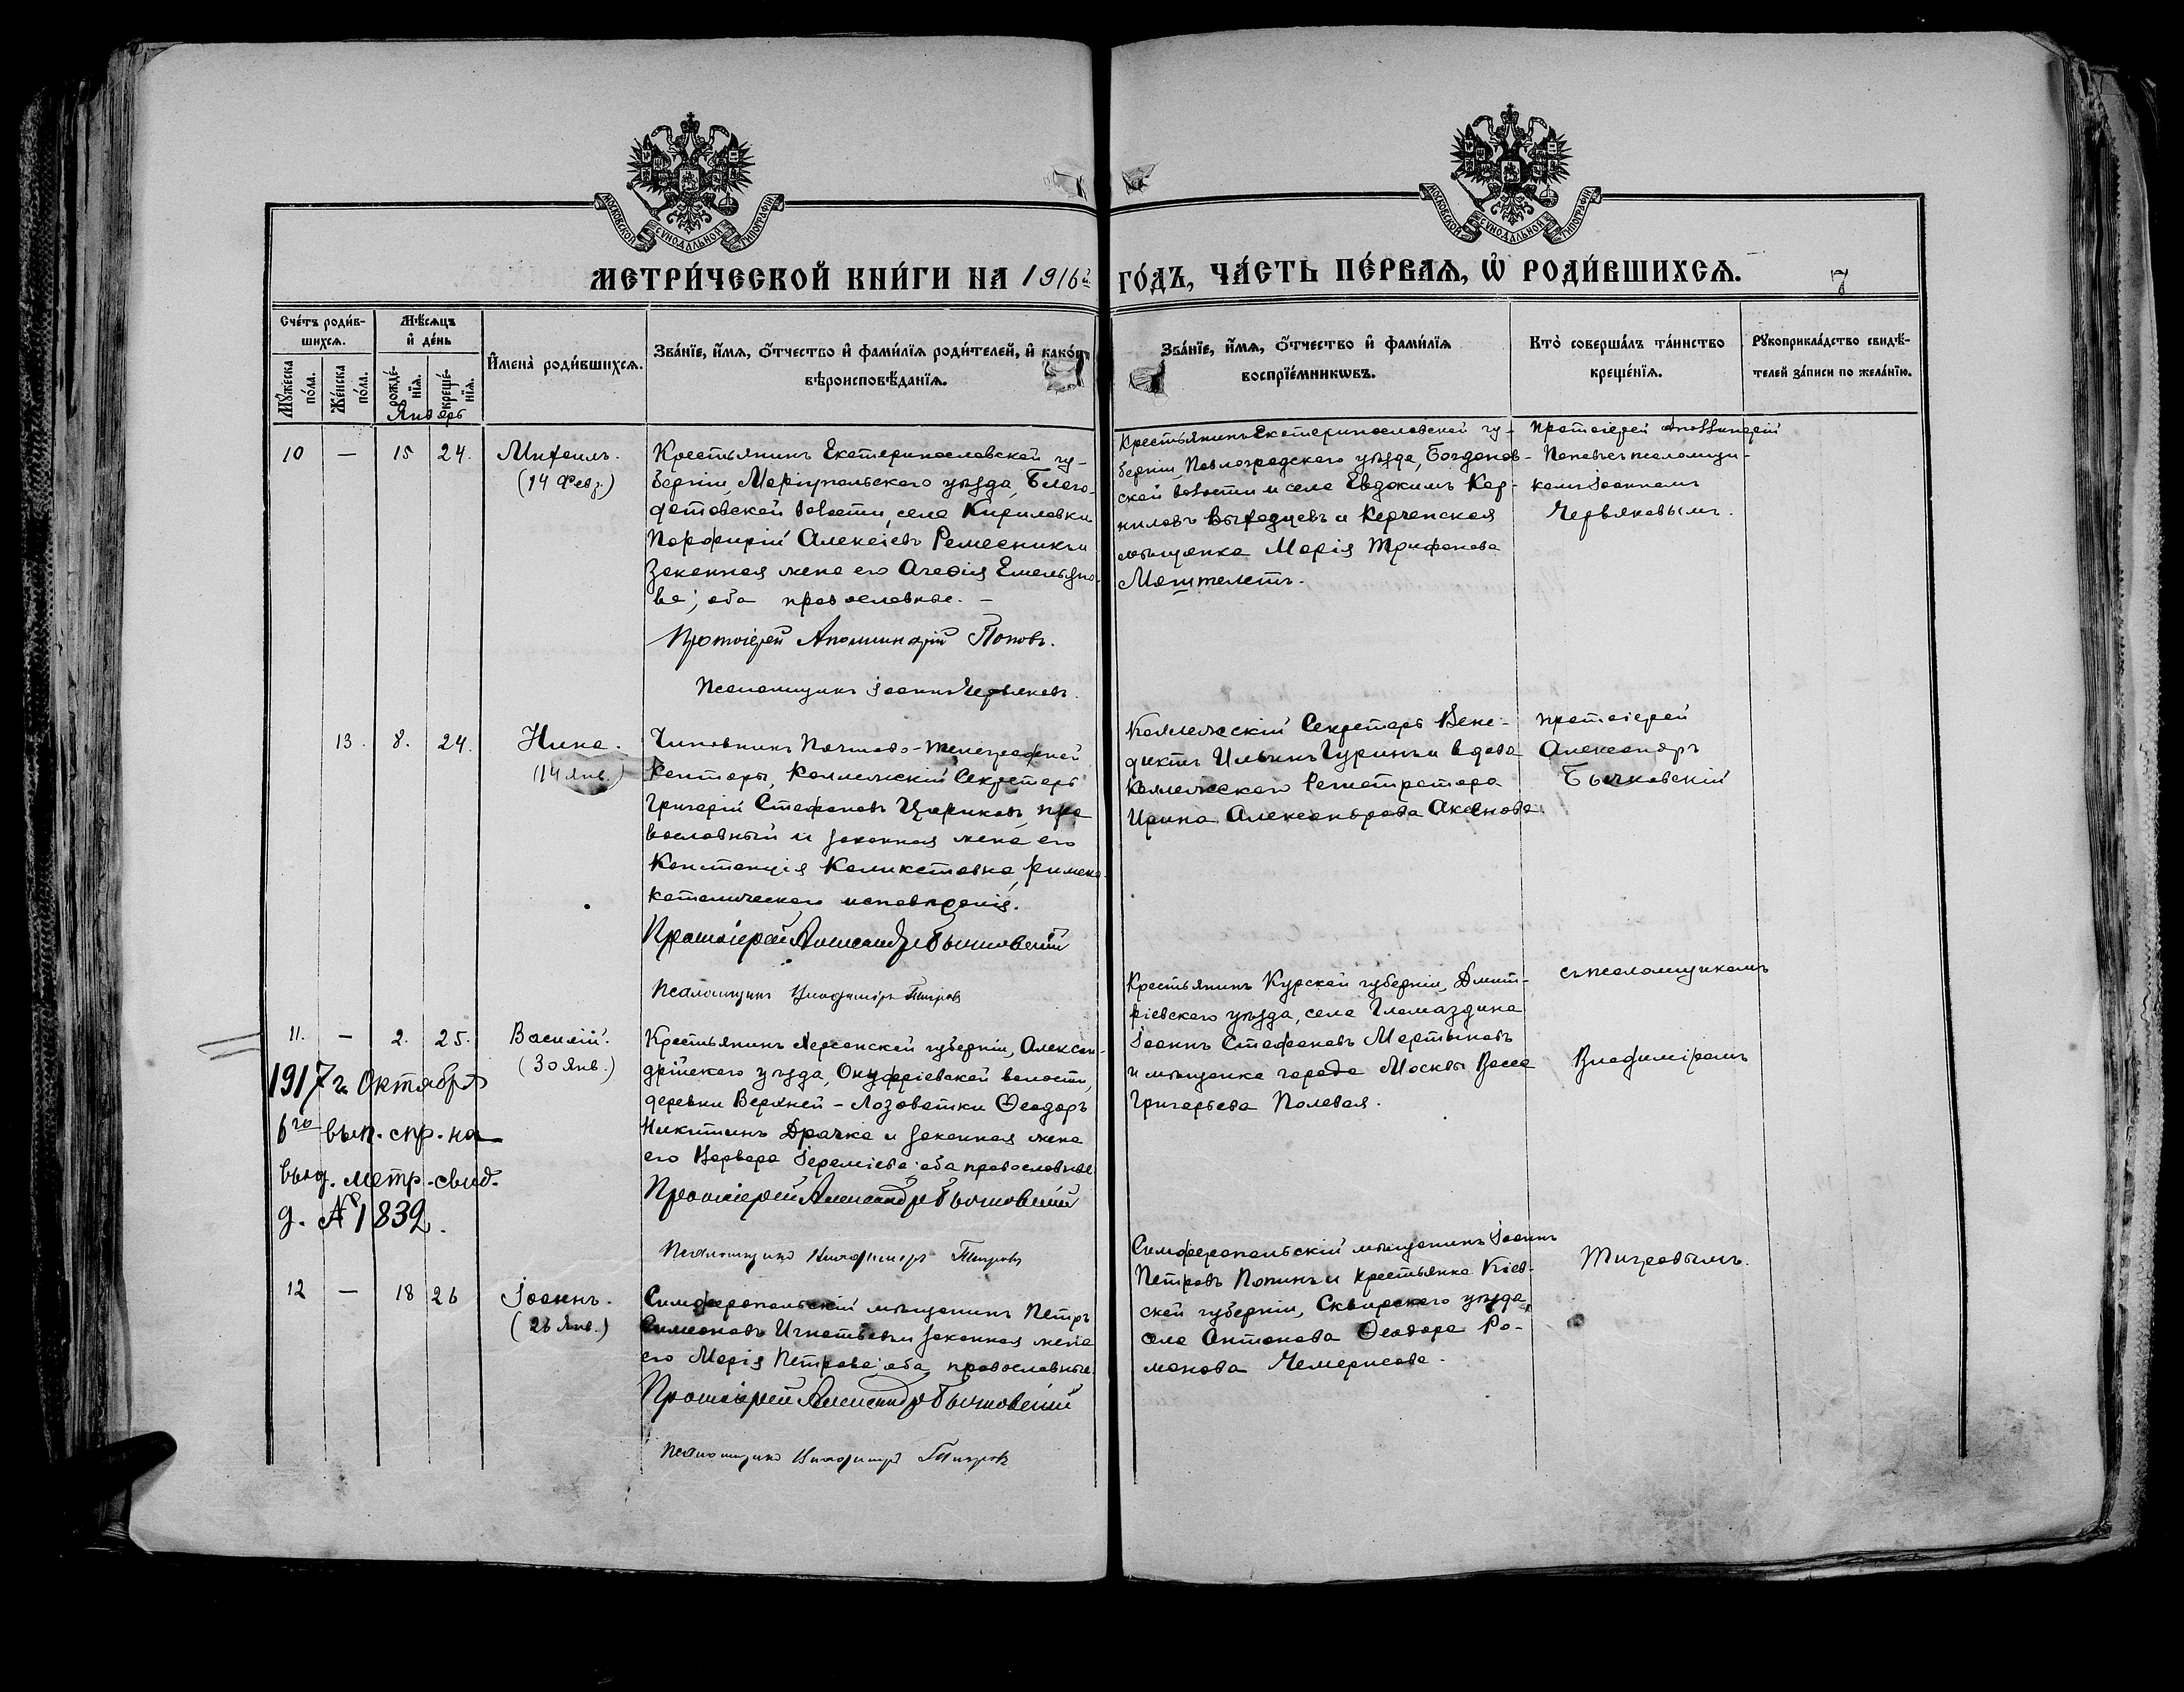 МОСКОВСКОЙ СѴНОДАЛЬНОЙ ТИПОГРАФІИ
МОСКОВСКОЙ СѴНОДАЛЬНОЙ ТИПОГРАФІИ
МЕТРИ́ЧЕСКОЙ КНИ́ГИ НА 1916й ГО́ДЪ, ЧА́СТЬ ПЕ́РВАѦ, Ѡ҆ РОДИ́ВШИХСѦ.
7
Сче́тъ роди́в-
шихсѧ.
Мꙋ́жеска
по́ла.
Же́нска
по́ла.
Мѣ́сѧцъ
и҆ де́нь
рожде́-
нїѧ.
креще́-
нїѧ.
Январь
И҆мена̀ роди́вшихсѧ.
Зва́нїе, и҆́мѧ, ѻ҆́тчество и҆ фами́лїѧ роди́телей, и҆ како́гѡ
вѣроисповѣ́данїѧ.
Зва́нїе, и҆́мѧ, ѻ҆́тчество и҆ фами́лїѧ
воспрїе́мникѡвъ.
Кто̀ соверша́лъ та́инство
креще́нїѧ.
Рꙋкоприкла́дство свидѣ́-
телей за́писи по жела́нїю.
10 — 15 24. Михаилъ.
(14 Февр.)
Крестьянинъ Екатеринославской гу-
берніи, Маріупольскаго уѣзда, Благо-
датовской волости, села Кириловки
Порфирій Алексіевъ Ремесникъ и
законная жена его Агафія Емельяно-
ва; оба православные. —
Протоіерей Аполлинарій Поповъ.
Псаломщикъ Іоаннъ Червяковъ.
Крестьянинъ Екатеринославской гу-
берніи, Павлоградскаго уѣзда, Богданов-
ской волости и села Евдокимъ Кор-
ниловъ Выходцевъ и Керченская
мѣщанка Марія Трифонова
Протоіерей Аполлинарій
Поповъ съ псаломщи-
комъ Іоанномъ
Червяковымъ.
13. 8. 24. Нина.
(14 Янв.)
Чиновникъ Почтово-телеграфной
Конторы, Коллежскій Секретарь
Григорій Стефановъ Цариковъ, пра
вославный и законная жена его
Констанція Каликстовна, римско-
католическаго исповѣданія.
Протоіерей Александръ Бычковскій
Псаломщикъ Владиміръ Тигровъ
Коллежскій Секретарь Вене-
диктъ Ильинъ Гуринъ и вдова
Коллежскаго Регистратора
Ирина Александрова Аксенова.
протоіерей
Александръ
Бычковскій
11. — 2. 25. Василій.
(30 Янв.)
Крестьянинъ Херсонской губерніи, Алексан-
дрійскаго уѣзда, Онуфріевской волости,
деревни Верхней-Лозоватки Ѳеодоръ
Никитинъ Драчка и законная жена
его Варвара Іереміева; оба православные
Протоіерей Александръ Бычковскій
Псаломщикъ Владиміръ Тигровъ
Крестьянинъ Курской губерніи, Дмит-
ріевскаго уѣзда, села Гламаздина
Іоаннъ Стефановъ Мартыновъ
и мѣщанка города Москвы Васса
Григорьева Полевая.
съ псаломщикомъ
Владиміромъ
1917 г. Октября
6го вып. спр. на
выд. метр. свид.
д. № 1832.
12 — 18 26 Іоаннъ.
(26 Янв.)
Симферопольскій мѣщанинъ Петръ
Симеоновъ Игнатьевъ и законная жена
его Марія Петрова; оба православные.
Протоіерей Александръ Бычковскій
Псаломщикъ Владиміръ Тигровъ
Симферопольскій мѣщанинъ Іоаннъ
Петровъ Попинъ и крестьянка Кіев-
ской губерніи, Сквирскаго уѣзда,
села Антонова Ѳеодора Ро-
манова Чемерисова.
Тигровымъ.